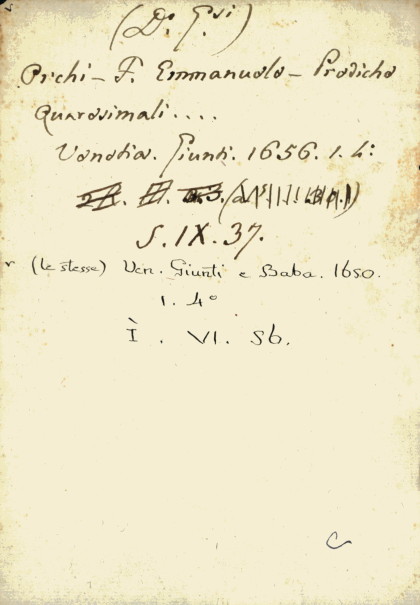 (Dr. Gsi)
Orchi - F. Emmanuole - Prediche
Quaresimali....
Venetia. Giunti. 1656. 1. 4:
S. IX. 37.
(le stesse) Ven. Giunti e Baba. 1650.
1. 4°
I. VI. 56.
C